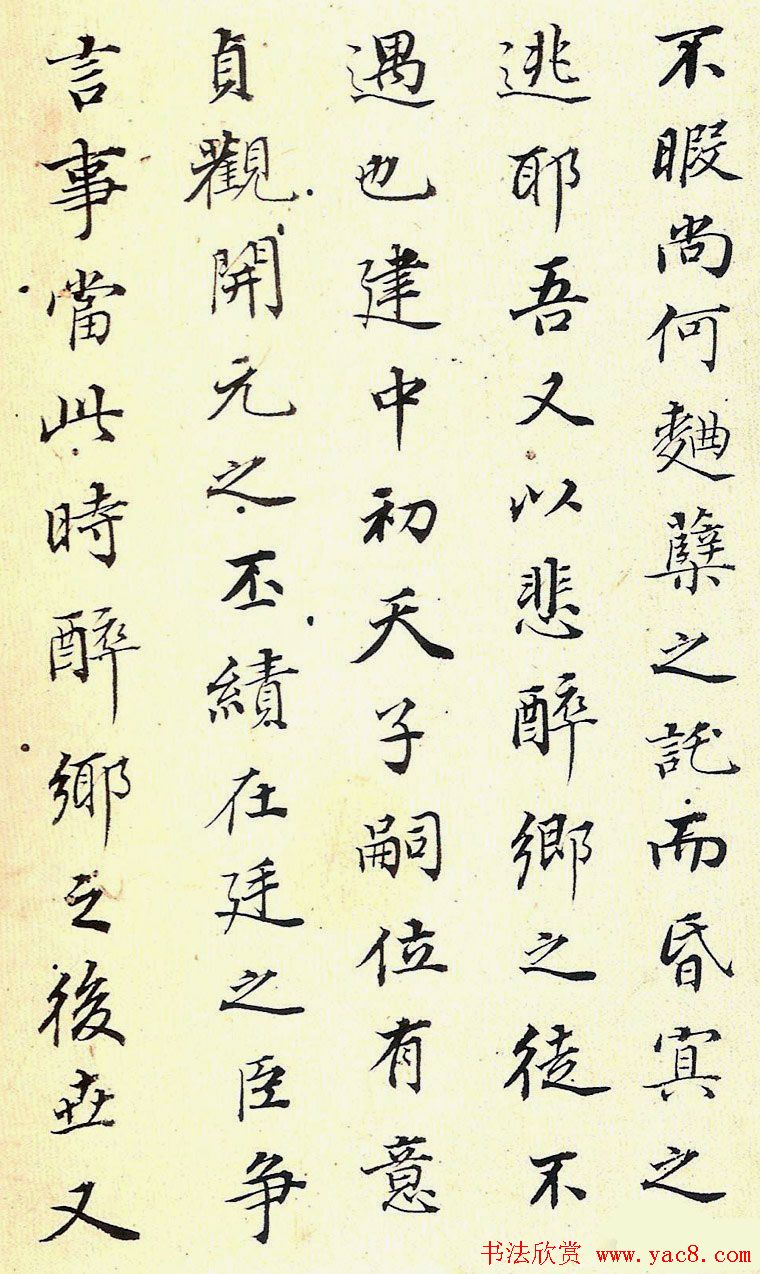 不暇尚何麯蘖之託而昏冥之
逃耶吾又以悲醉鄉之徒不
遇也建中初天子嗣位有意
貞觀開元之丕績在廷之臣争
言事當此時醉鄉之後世又
书法欣赏 www.yac8.com